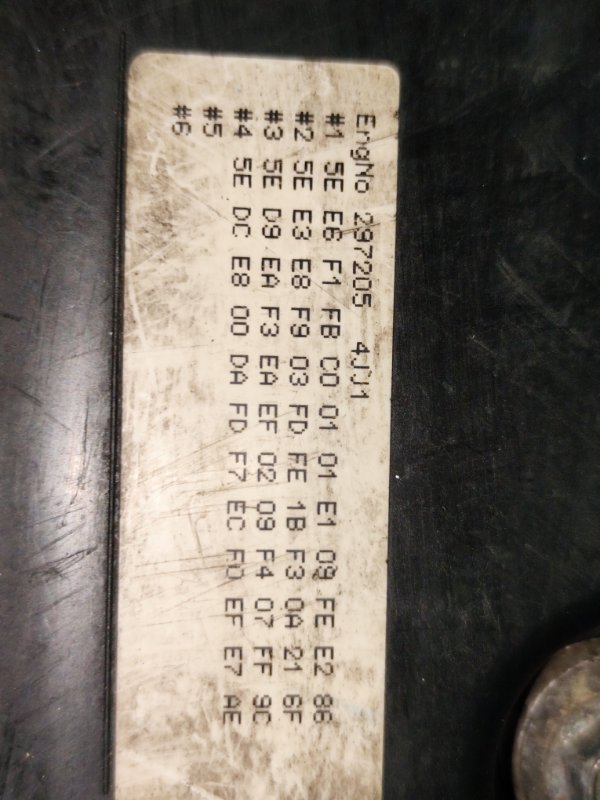 EngNo 297205 4JJ1
#1 5E E6 F1 FB C0 01 01 E1 09 FE E2 86
#2 5E E3 E8 F9 03 FD FE 1B F3 0A 21 6F
#3 5E D9 EA F3 EA EF 02 09 F4 07 FF 9C
#4 5E DC E8 00 DA FD F7 EC F0 EF E7 AE
#5
#6